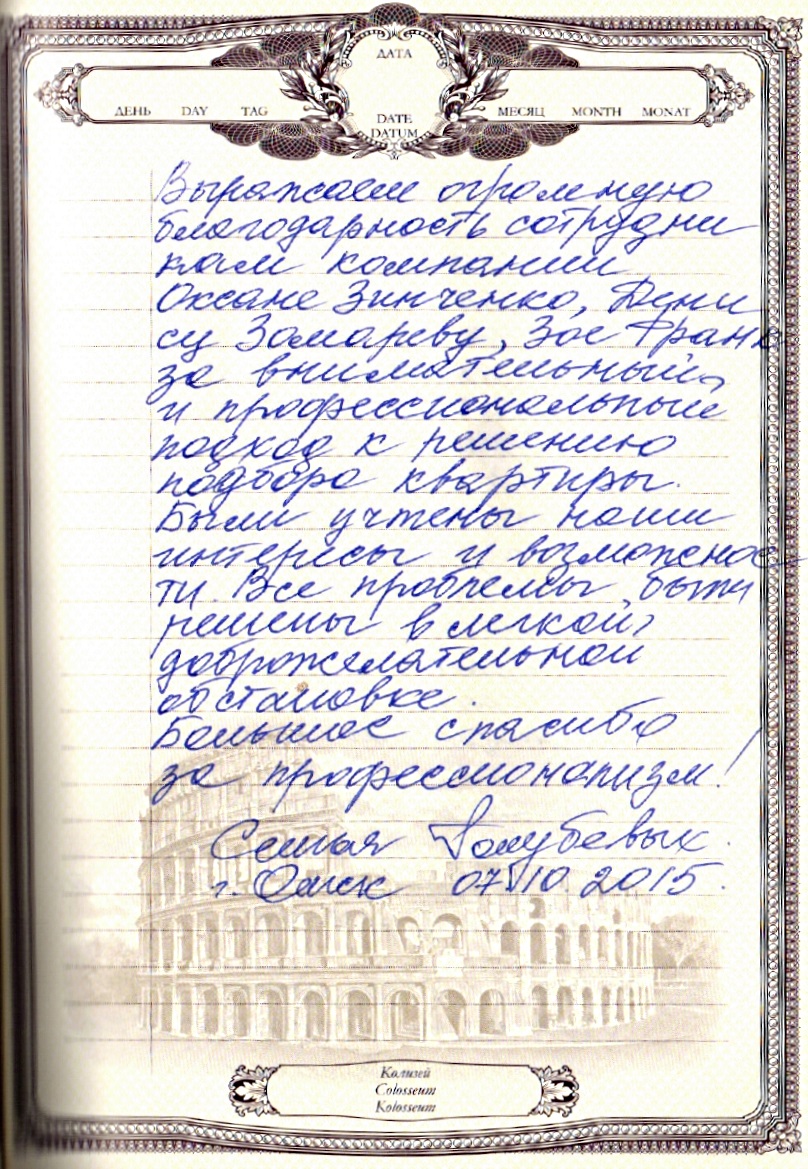 ДАТА
ДЕНЬ DAY TAG
DATE
DATUM
МЕСЯЦ MONTH MONAT
Выражаем огромную
благодарность сотрудни
кам компании
Оксане Зинченко, Дени
су Замареву, Зое Франк
за внимательный
и профессиональный
подход к решению
подбора квартиры.
Были учтены наши
интересы и возможнос
ти. Все проблемы были
решены в легкой,
доброжелательной
обстановке.
Большое спасибо
за профессионализм!
Семья Голубевых.
г. Омск 07.10.2015.
Колизей
Colosseum
Kolosseum